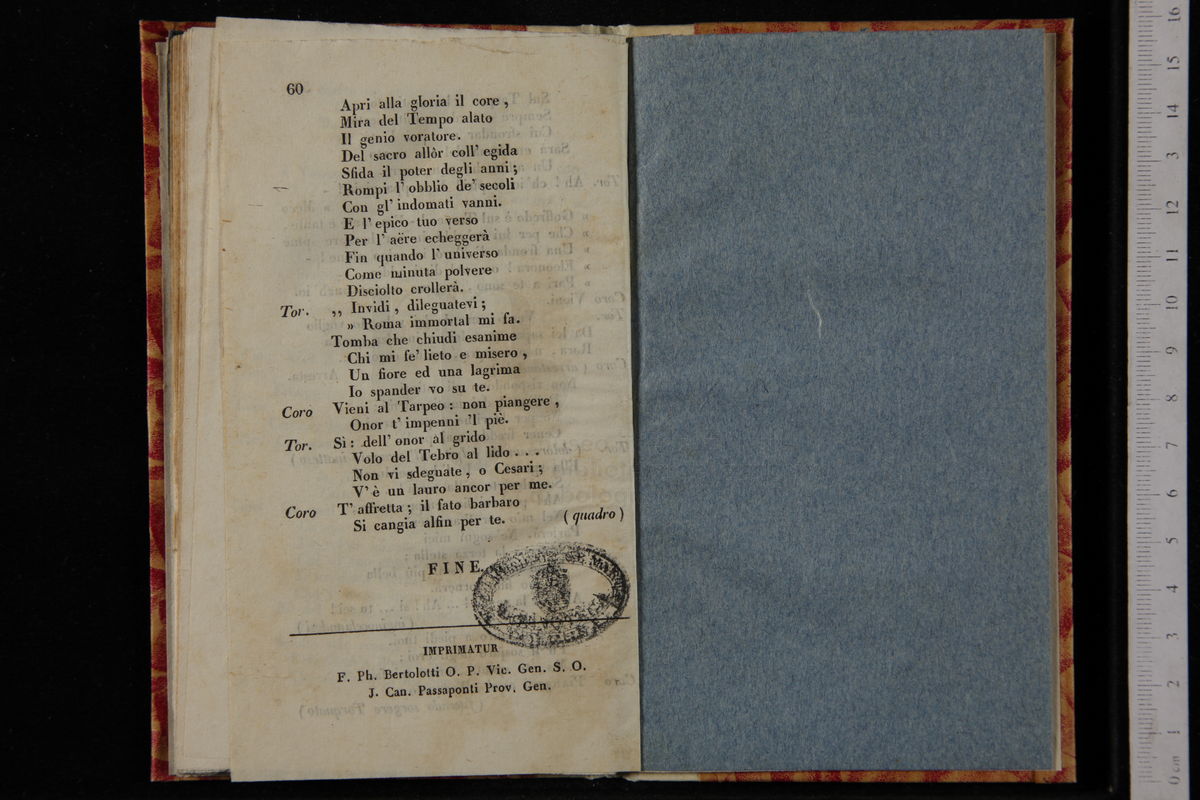 60
Apri alla gloria il core ,
Mira del Tempo alato
Il genio voratore.
Del sacro allôr coll' egida
Sfida il poter degli anni ;
Rompi l' obblio de' secoli
Con gl' indomati vanni.
E l' epico tuo verso
Per l' aëre echeggerà
Fin quando l' universo
Come minuta polvere
Disciolto crollerà.
Tor. ,, Invidi , dileguatevi ;
» Roma immortal mi fa.
Tomba che chiudi esanime
Chi mi fe' lieto e misero ,
Un fiore ed una lagrima
Io spander vo su te.
Coro Vieni al Tarpeo : non piangere ,
Onor t' impenni 'l piè.
Tor. Sì : dell' onor al grido
Volo del Tebro al lido . . .
Non vi sdegnate , o Cesari ;
V' è un lauro ancor per me.
Coro T' affretta ; il fato barbaro
Si cangia alfin per te. ( quadro )
FINE.
IMPRIMATUR
F. Ph. Bertolotti O. P. Vic. Gen. S. O.
J. Can. Passaponti Prov. Gen.
16
15
14
13
12
11
10
9
8
7
6
5
4
3
2
1
0 cm